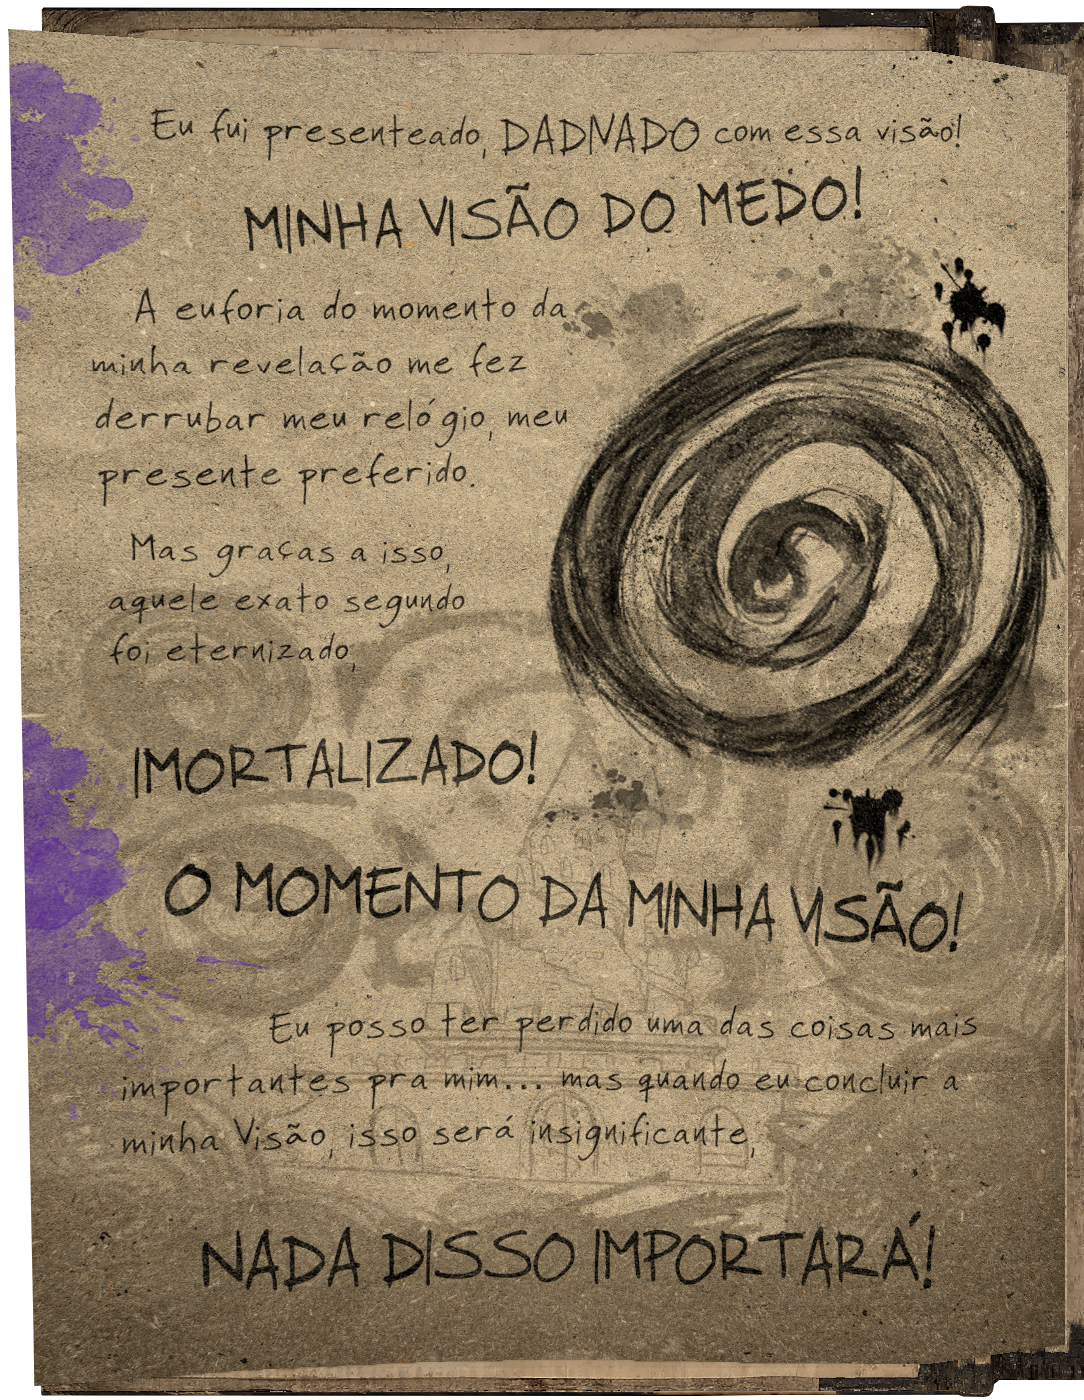 Eu fui presenteado, DADNADO com essa visão!
MINHA VISÃO DO MEDO!
A euforia do momento da
minha revelação me fez
derrubar meu relógio, meu
presente preferido.
Mas graças a isso,
aquele exato segundo
foi eternizado,
IMORTALIZADO!
O MOMENTO DA MINHA VISÃO!
Eu posso ter perdido uma das coisas mais
importantes pra mim... mas quando eu concluir a
minha Visão, isso será insignificante,
NADA DISSO IMPORTARÁ!